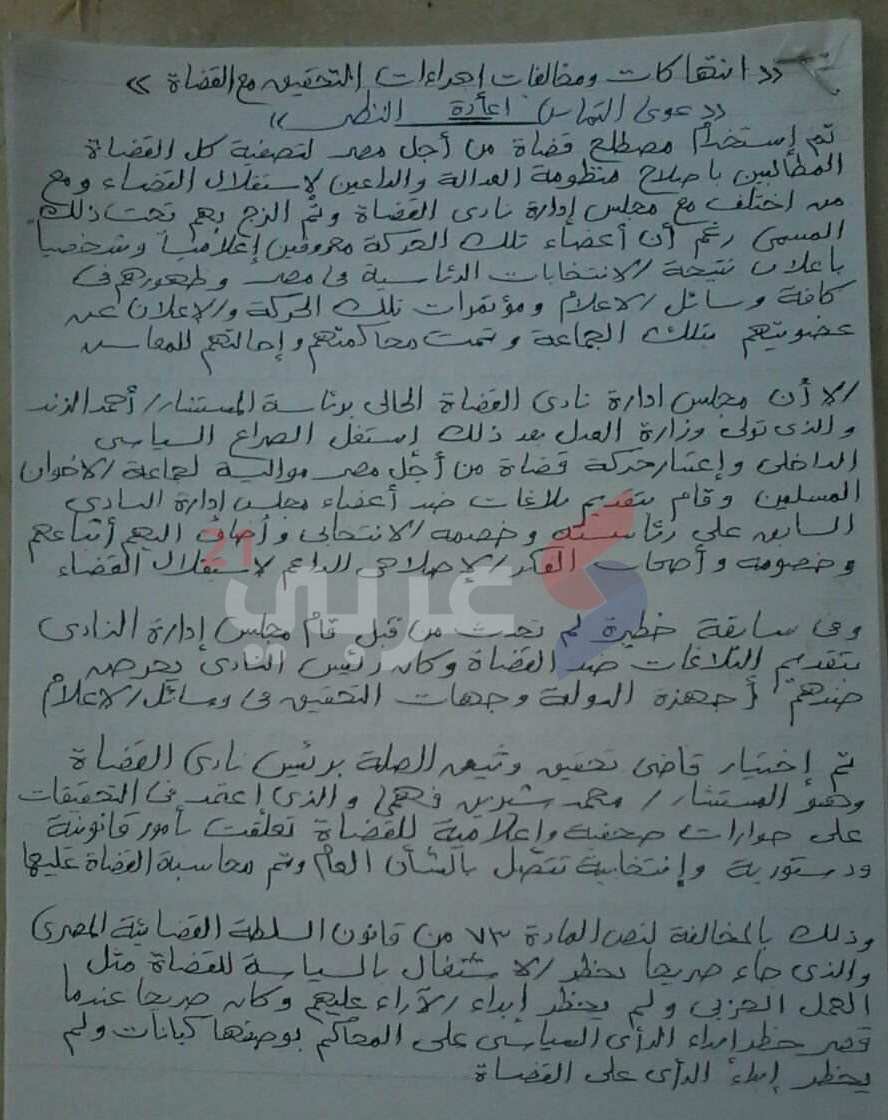 << انتهاكات ومخالفات إجراءات التحقيق مع القضاة >>
<< دعوى التماس إعادة النظر >>
تم إستخدام مصطلح قضاة من أجل مصر لتصفية كل القضاة
المطالبين باصلاح منظومة العدالة والداعين لاستقلال القضاء ومع
من اختلف مع مجلس إدارة نادى القضاة وتم الزج بهم تحت ذلك
المسمى رغم أن أعضاء تلك الحركة معروفين إعلامياً وشخصياً
باعلان نتيجة الانتخابات الرئاسية فى مصر وظهورهم فى
كافة وسائل الاعلام ومؤتمرات تلك الحركة والاعلان عن
عضويتهم بتلك الجماعة وتمت محاكمتهم وإحالتهم للمعاش
إلا أن مجلس ادارة نادى القضاة الحالى برئاسة المستشار/ أحمد الزند
والذى تولى وزارة العدل بعد ذلك إستغل الصراع السياسى
الداخلى وإعتبار حركة قضاة من أجل مصر موالية لجماعة الاخوان
المسلمين وقام بتقديم بلاغات ضد أعضاء مجلس إدارة النادى
السابق على رئاسته وخصمه الانتخابى وأضاف اليهم أتباعهم
وخصومه وأصحاب الفكر الإصلاحى الداعم لاستقلال القضاء
21 عربي
وفى سابقة خطيرة لم تحدث من قبل قام مجلس إدارة النادى
بتقديم البلاغات ضد القضاة وكان رئيس النادى يحرض
ضدهم أجهزة الدولة وجهات التحقيق فى وسائل الاعلام
تم إختيار قاضى تحقيق وثيق الصلة برئيس نادى القضاة
وهو المستشار/ محمد شيرين فهمى والذى اعتمد فى التحقيقات
على حوارات صحفية وإعلامية للقضاة تعلقت بأمور قانونية
ودستورية وإنتخابية تتصل بالشأن العام وتم محاسبة القضاة عليها
وذلك بالمخالفة لنص المادة ٧٣ من قانون السلطة القضائية المصرى
والذى جاء صريحا بحظر الاشتغال بالسياسة للقضاة مثل
العمل الحزبى ولم يحظر إبداء الآراء عليهم وكان صريحا عندما
قصر حظر ابداء الرأى السياسى على المحاكم بوصفها كيانات ولم
يحظر إبداء الرأى على القضاة